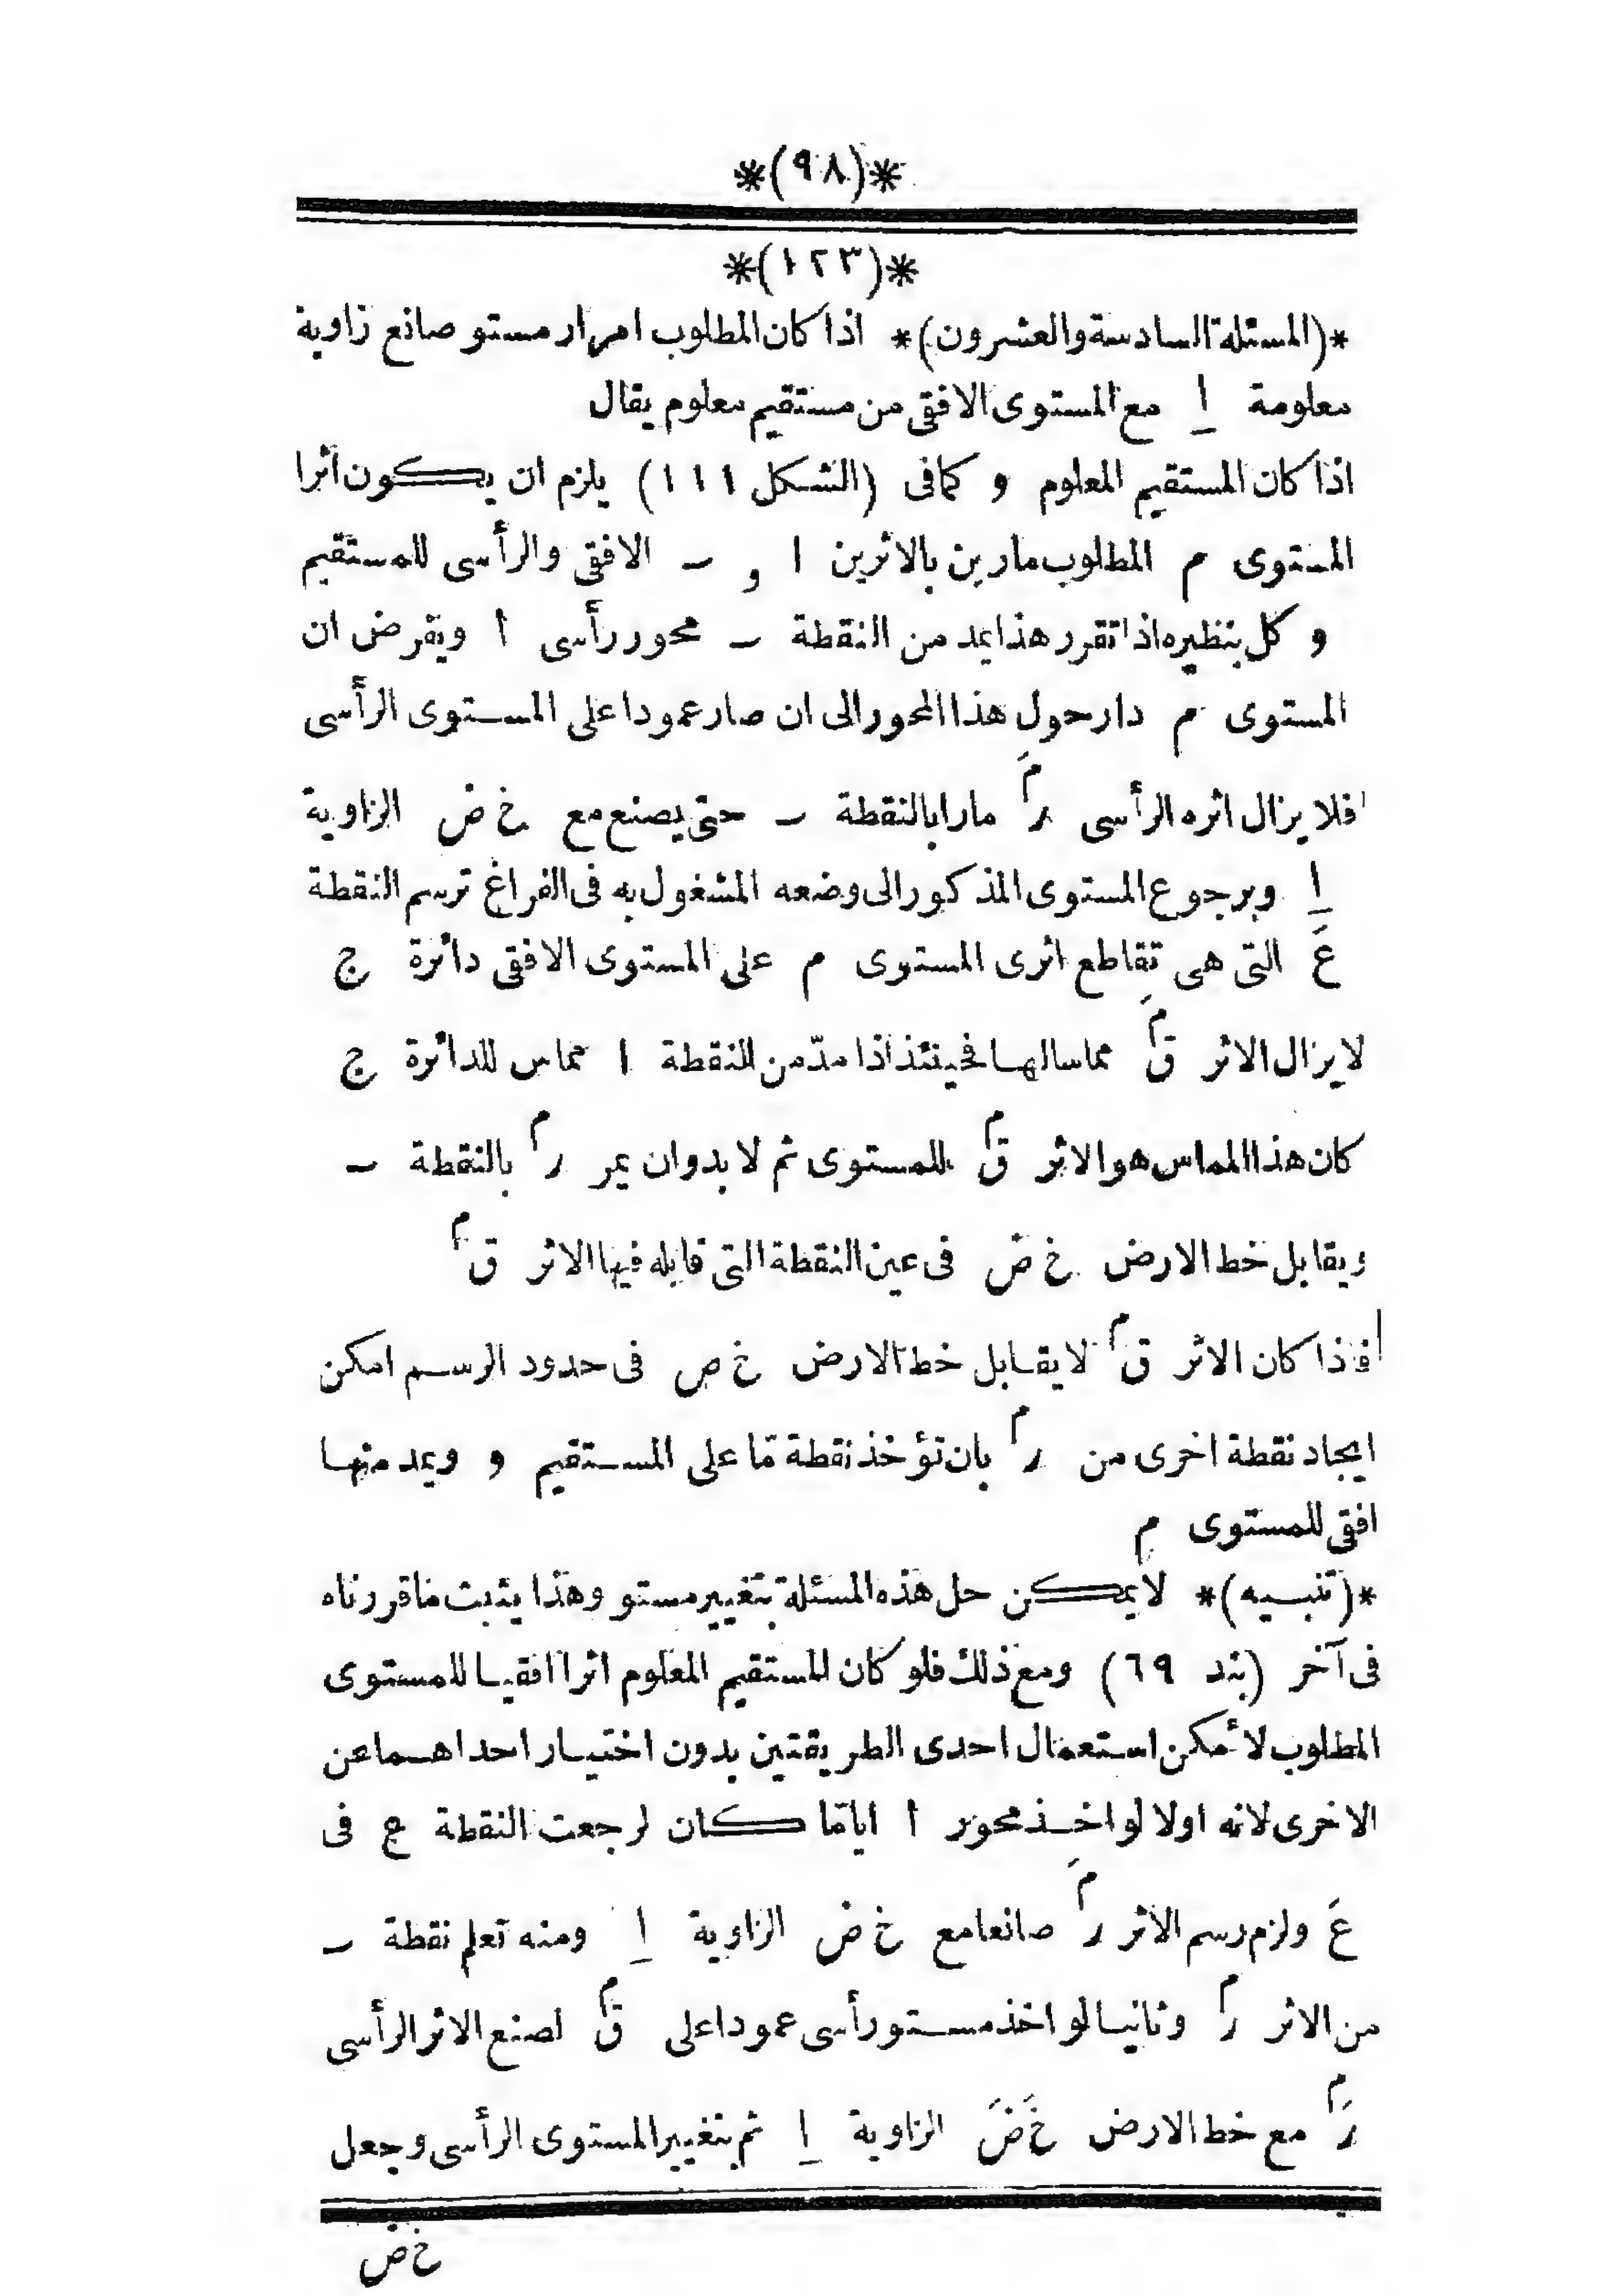 *(٩٨)*
*(١٢٣)*
*(المسئلة السادسة والعشرون)* اذا كان المطلوب امرار مستو صانع زاوية
معلومة ا مع المستوى الافقى من مستقيم معلوم يقال
اذا كان المستقيم المعلوم و كما فى (الشكل ١١١) يلزم ان يكون اثرا
المستوى م المطلوب مارين بالاثرين ا و ـ الافقى والرأسى للمستقيم
و كل بنظيره اذا تقرر هذا يمد من النقطة ـ محور رأسى ا ويفرض ان
المستوى م دار حول هذا المحور الى ان صار عمودا على المستوى الرأسى
فلا يزال اثره الرأسى رَم مارا بالنقطة ـ حتى يصنع مع خ ض الزاوية
ا وبرجوع المستوى المذكور الى وضعه المشغول به فى الفراغ ترسم النقطة
عَ التى هى تقاطع اثرى المستوى م على المستوى الافقى دائرة ج
لا يزال الاثر قَم مماسا لها فحينئذ اذا مدّ من النقطة ا مماس للدائرة ج
كان هذا المماس هو الاثر قم للمستوى ثم لا بد وان يمر رم بالنقطة ـ
ويقابل خط الارض خ ض فى عين النقطة التى قابله فيها الاثر قم
فاذا كان الاثر قم لا يقابل خط الارض خ ص فى حدود الرسم امكن
ايجاد نقطة اخرى من رم بان تؤخذ نقطة مّا على المستقيم و ويمد منها
افقى للمستوى م
*(تنبيه)* لا يمكن حل هذه المسئلة بتغيير مستو وهذا يثبت ما قررناه
فى آخر (بند ٦٩) ومع ذلك فلو كان المستقيم المعلوم اثرا افقيا للمستوى
المطلوب لأمكن استعمال احدى الطريقتين بدون اختيار احداهما عن
الاخرى لانه اولا لو اخذ محور ا ايا مّا كان لرجعت النقطة ع فى
عَ ولزم رسم الاثر رَم صانعا مع خ ض الزاوية ا ومنه تعلم نقطة ـ
من الاثر رم وثانيا لو اخذ مستو رأسى عمودا على قم لصنع الاثر الرأسى
رَم مع خط الارض خَ ضَ الزاوية ا ثم بتغيير المستوى الرأسى وجعل
خ ض